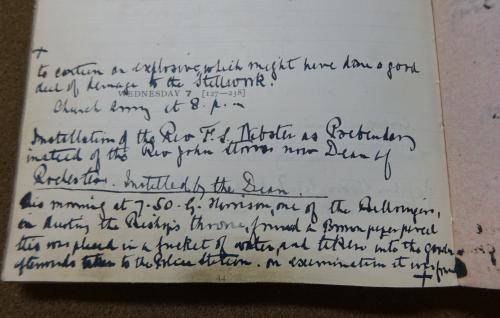 +
to contain an explosive which might have done a good
deal of damage to the Stillwork.
WEDNESDAY 7 [127—238]
Church Army at 8. p. m
Installation of the Rev F. L. Webster as Prebendary
instead of the Rev John Storrs now Dean of
Rochester. Installed by the Dean
This morning at 7-50. G. Harrison, one of the Bellringers,
in dusting the Bishop's throne, found a Brown paper parcel
this was placed in a bucket of water, and taken into the garden
afterwards taken to the Police Station. on examination it was found
+
44